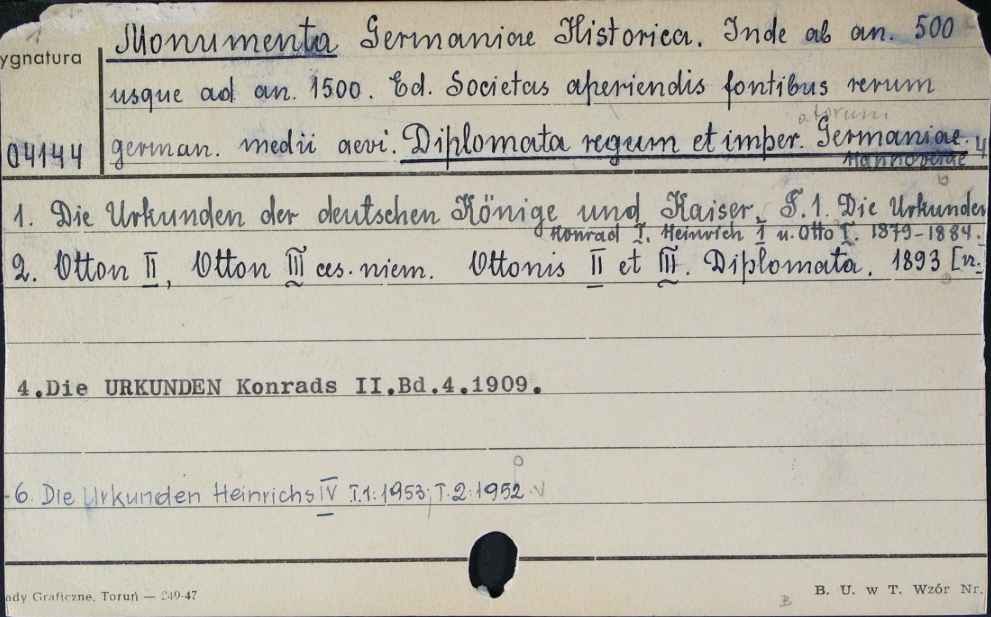 Monumenta Germaniae Historica. Inde ab an. 500
ygnatura
usque ad an. 1500. Ed. Societas aperiendis fontibus rerum
atorum
04144 german. medii aevi. Diplomata regum et imper. Germaniae. 4
Hannoverae
1. Die Urkunden der deutschen Könige und Kaiser. T.1. Die Urkunden
Konrad I. Heinrich I u. Otto I. 1879-1884.
2. Otton II, Otton III ces. niem. Ottonis II et III. Diplomata. 1893 [n.
4.Die URKUNDEN Konrads II.Bd.4.1909.
6. Die Urkunden Heinrichs IV T.1:1953; T.2:1952
ady Graficzne, Toruń — 249-47
B. U. w T. Wzór Nr.
B